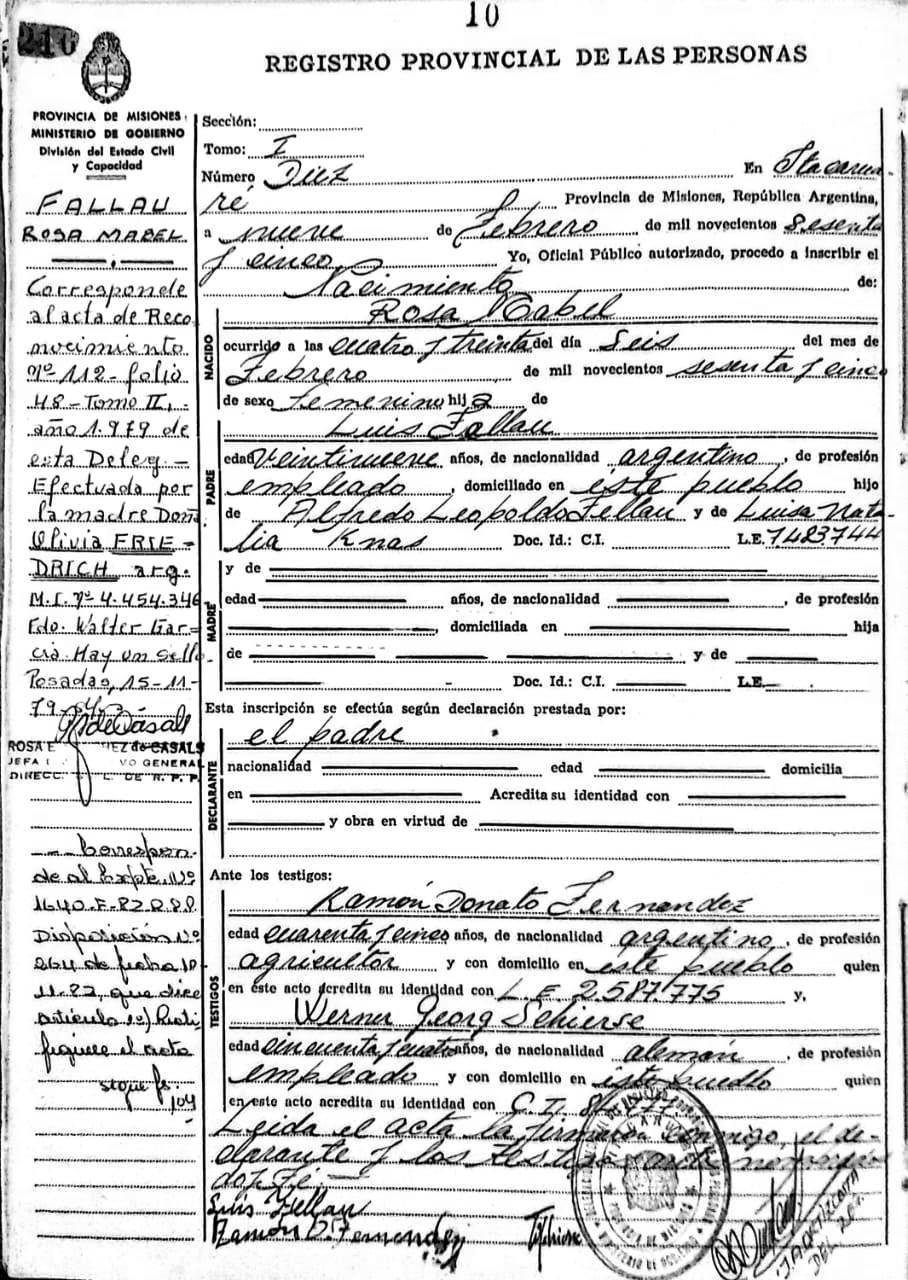 10
210
REGISTRO PROVINCIAL DE LAS PERSONAS
PROVINCIA DE MISIONES
MINISTERIO DE GOBIERNO
División del Estado Civil
y Capacidad
FALLAU
ROSA MABEL
Corresponde
al acta de Reco
nocimiento
Nº 112-folio
48-Tomo II,
año 1.979 de
esta Deleg-
Efectuada por
la madre Doña
Olivia FRIE-
DRICH arg.
M.I. Nº 4.454.346
Fdo. Walter Gar-
cia. Hay un sello
Posadas, 15-11-
79
de CASALS
JEFA VO GENERAL
DIRECC. DE R. P. P.
Correspon-
de al Expte. Nº
1640-F-82
Disposición Nº
264 de fecha 10
11-82, que dice
artículo 1º) Recti
fiquese el acta
sigue fs.
104
Sección:
Tomo: I
Número Diez En Itacarua
ré Provincia de Misiones, República Argentina,
a nueve de Febrero de mil novecientos Sesenta
y cinco Yo, Oficial Público autorizado, procedo a inscribir el
Nacimiento de:
NACIDO
Rosa Mabel
ocurrido a las cuatro y treinta del día Seis del mes de
Febrero de mil novecientos sesenta y cinco
de sexo femenino hija de
PADRE
Luis Fallau
edad Veintinueve años, de nacionalidad argentino, de profesión
empleado, domiciliado en éste pueblo hijo
de Alfredo Leopoldo Fellau y de Luisa Nata-
lia Knas Doc. Id.: C.I. L.E. 7.423.744
MADRE
y de
edad años, de nacionalidad , de profesión
, domiciliada en hija
de y de
Doc. Id.: C.I. L.E.
Esta inscripción se efectúa según declaración prestada por:
DECLARANTE
el padre
nacionalidad edad domicilia
en Acredita su identidad con
y obra en virtud de
Ante los testigos:
TESTIGOS
Ramón Donato Fernandez
edad cuarenta y cinco años, de nacionalidad argentino, de profesión
agricultor y con domicilio en éste pueblo quien
en este acto acredita su identidad con L.E 2.587.775 y,
Werner Georg Schierse
edad cincuenta y cuatro años, de nacionalidad alemán, de profesión
empleado y con domicilio en éste pueblo quien
en este acto acredita su identidad con C.I.
Leida el acta la firman conmigo, el de-
clarante y los testigos ante
doy Fé
Luis Fellau
Ramón D. Fernandez